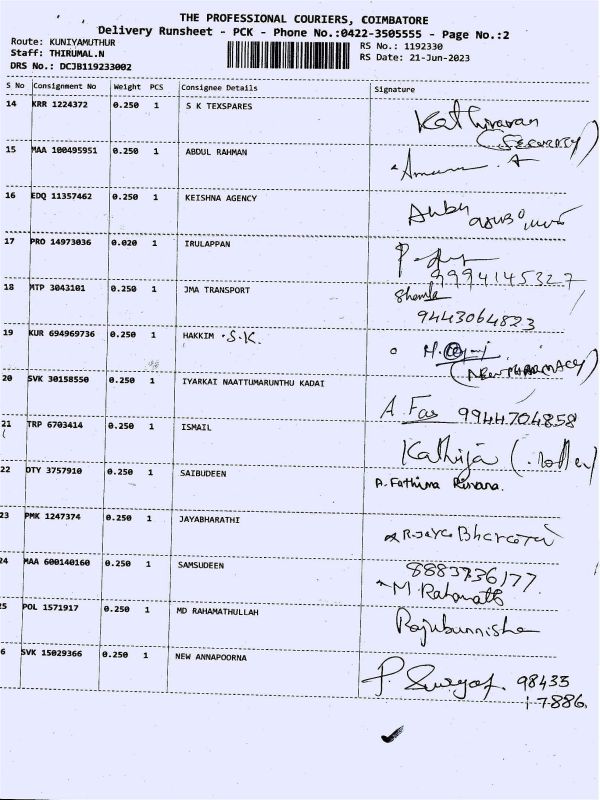 THE PROFESSIONAL COURIERS, COIMBATORE
Delivery Runsheet - PCK - Phone No.:0422-3505555 - Page No.:2
Route: KUNIYAMUTHUR RS No.: 1192330
Staff: THIRUMAL.N RS Date: 21-Jun-2023
DRS No.: DCJB119233002
S No Consignment No Weight PCS Consignee Details Signature
14 KRR 1224372 0.250 1 S K TEXSPARES Kathiravan
(SECURITY)
15 MAA 100495951 0.250 1 ABDUL RAHMAN
16 EDQ 11357462 0.250 1 KEISHNA AGENCY
17 PRO 14973036 0.020 1 IRULAPPAN
9994145327
18 MTP 3043101 0.250 1 JMA TRANSPORT
9443064823
19 KUR 694969736 0.250 1 HAKKIM .S.K.
(NEW PHARMACY)
20 SVK 30158550 0.250 1 IYARKAI NAATTUMARUNTHU KADAI
A. Fas 9944704858
21 TRP 6703414 0.250 1 ISMAIL
Kathija
22 DTY 3757910 0.250 1 SAIBUDEEN A. Fathima Rinana.
23 PMK 1247374 0.250 1 JAYABHARATHI
R. Jaya Bharathi
24 MAA 600140160 0.250 1 SAMSUDEEN 8883736177
M. Rahamath
5 POL 1571917 0.250 1 MD RAHAMATHULLAH Rajubunnisha
6 SVK 15029366 0.250 1 NEW ANNAPOORNA
98433
17886.